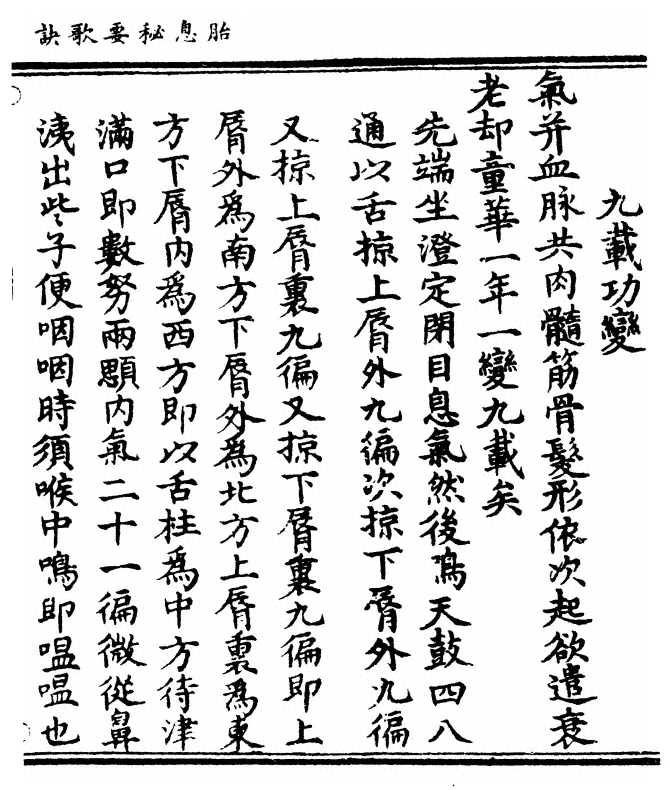 胎息秘要歌訣
九載功變
氣并血脉共肉髓筋骨髮形依次起欲遣衰
老却童華一年一變九載矣
先端坐澄定閉目息氣然後鳴天鼓四八
通以舌掠上脣外九徧次掠下脣外九徧
又掠上脣裏九徧又掠下脣裏九徧即上
脣外爲南方下脣外爲北方上脣裏爲東
方下脣内爲西方即以舌柱爲中方待津
滿口即數努兩顋内氣二十一徧微從鼻
洟出些子便咽咽時須喉中鳴即嗢嗢也